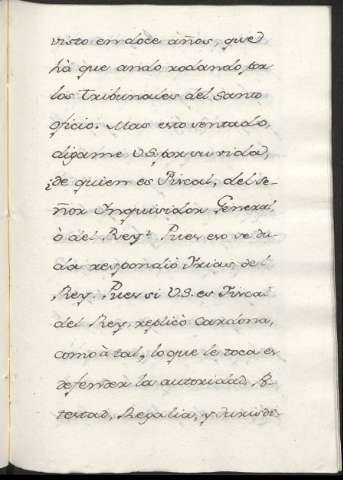 visto en doce años, que
hà que ando rodando por
los Tribunales del Santo
oficio. Mas esto sentado,
digame V.S. por su vida,
¿de quien es Fiscal, del Se-
ñor Inquisidor General
ò del Rey? Pues eso se du-
da respondiò Frias del
Rey. Pues si V.S. es Fiscal
del Rey, replicò Cardona,
como à tal, lo que le toca es
defender la autoridad, Po-
testad, Regalia, y Jurisdi-